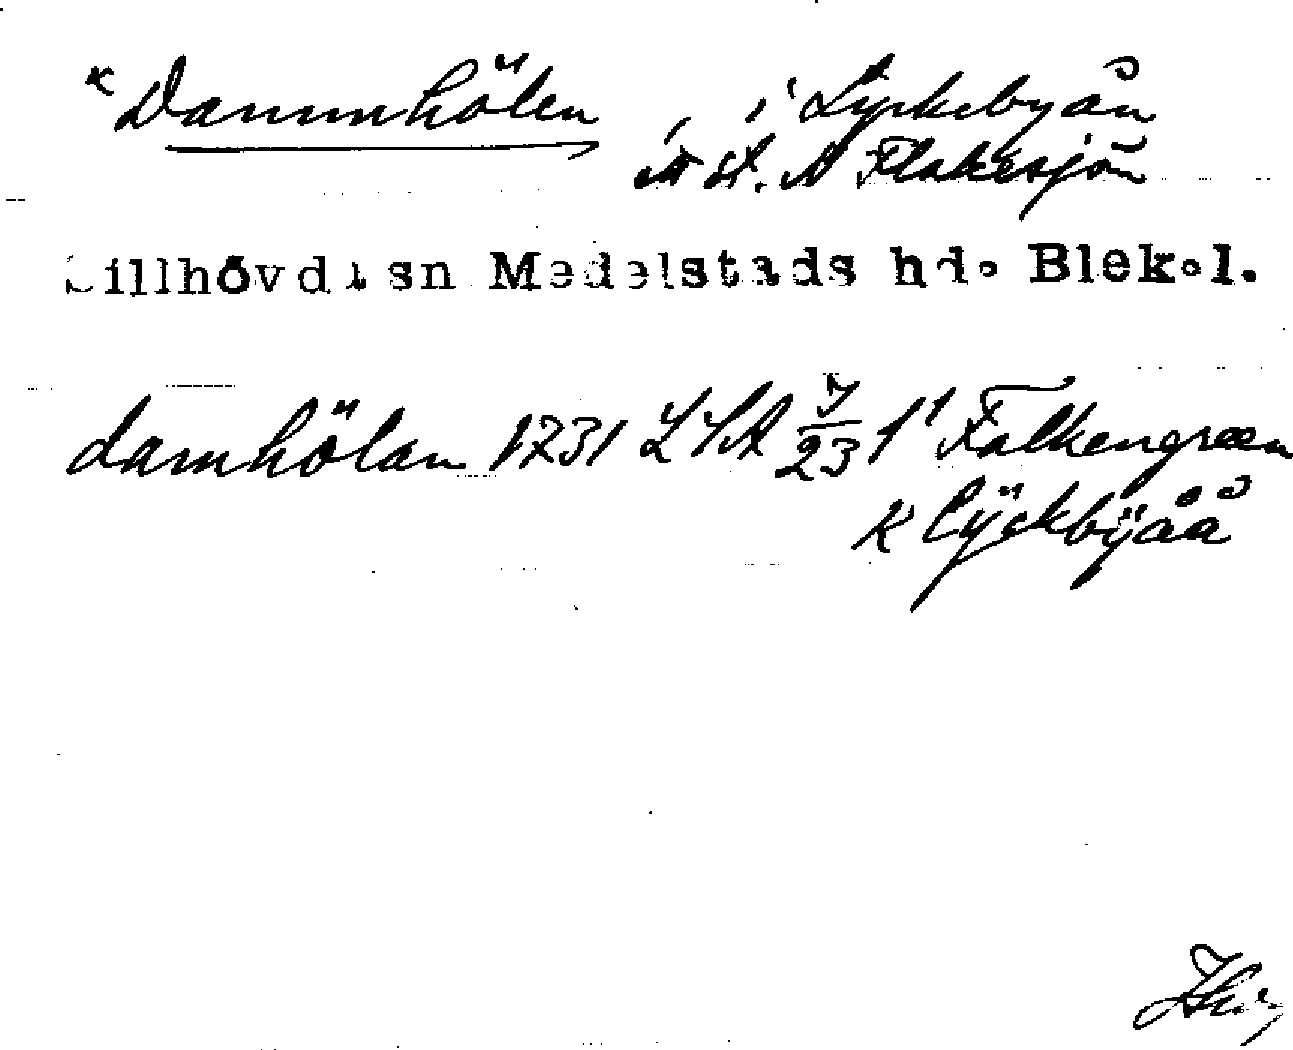 * Dammhölen, i Lyckebyån
st. N Flakesjön
Sillhövda sn Medelstads hd. Blek.l.
damhölan 1731 LSA 7/23 1¹ Falkengreen
K Cÿckbÿåå